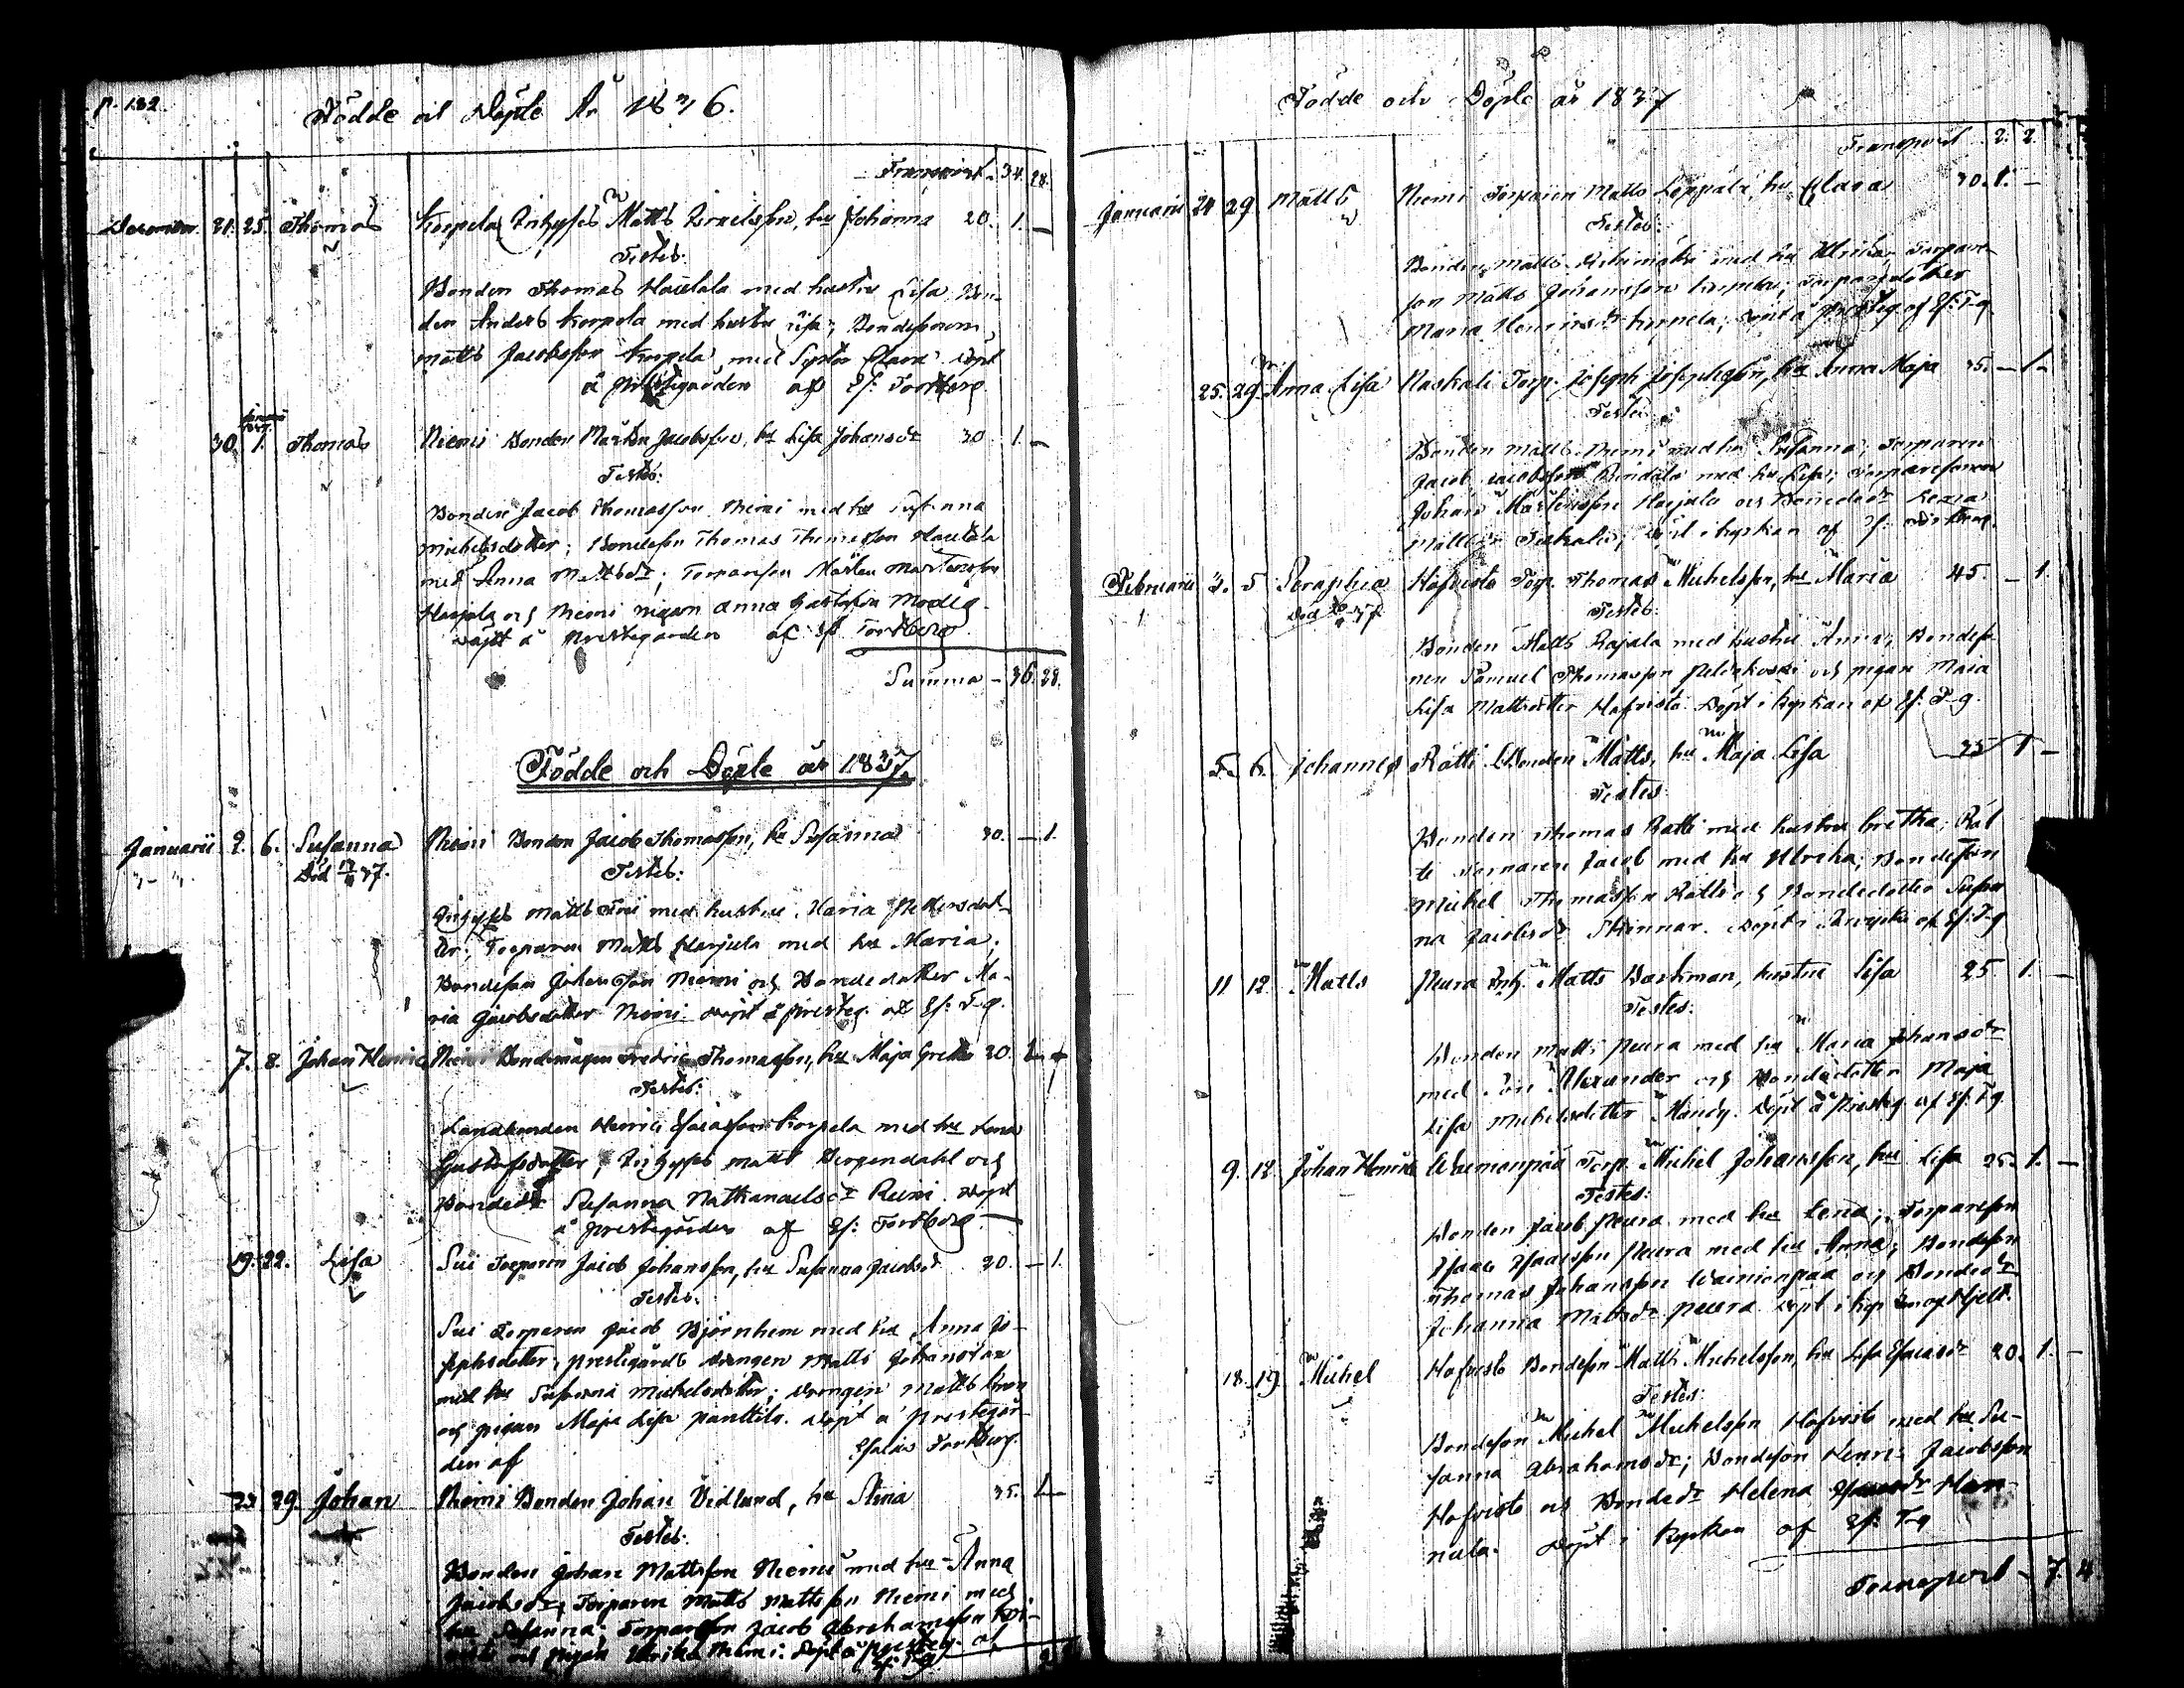 p. 132.
Födde och Döpte År 1836.
Transport 34. 28.
December 21. 25. Thomas Korpela Inhyses Matts Israelsson, hu Johanna 20. 1. —
Testes:
Bonden Thomas Hautala med hustru Lisa Bon-
den Anders Korpela med hustru Lisa; Bondesonen
Matts Jacobsson Korpela med Syster Clara Döpt
å Prestegården af Es: Fortberg
Januari 1837.
30. 1. Thomas Niemi Bonden Mårten Jacobsson, hu Lisa Johansdr 30. 1. —
Testes:
Bonden Jacob Thomasson Niemi med hu Susanna
Michelsdotter; Bondeson Thomas Thomasson Hautala
med Anna Mattsdr; Torparson Mårten Mårtensson
Harjala och Niemi pigan Anna Gustafva Modeg
Döpt å Prestegården af Es: Fortberg
Summa — 36. 28.
Födde och Döpte år 1837.
Januarii 2. 6. Susanna Niemi Bonden Jacob Thomasson, hu Susanna 30. — 1.
Död 37. Testes:
Inhyses Matts med hustru Maria Pettersdot-
ter; Torparen Matts Harjula med hu Maria;
Bondeson Johan Niemi och Bondedotter Ma-
ria Jacobsdotter Niemi Döpt å Presteg. af Es: F-g.
7. 8. Johan Henric Niemi Bondemågen Fredric Thomasson, hu Maja Greta 20. 1.
Testes:
Landbonden Henric Esaiasson Korpela med hu Lena
Gustafsdotter; Inhyses Matts Bergendahl och
Bondedr Susanna Nathanaelsdr Rumi. Döpt
å Prestegården af Es: Fortberg.
19. 22. Lisa Sui Torparen Jacob Johansson, hu Susanna Jacobsdr 30. — 1.
Testes:
Sui Torparen Jacob Björnhem med hu Anna Jo-
sephsdotter, Prestegårds Drengen Matts Johansson
med hu Susanna Michelsdotter; Drengen Matts
och pigan Maja Lisa Panttila. Döpt å Prestegår-
den af Esaias Fortberg.
29. Johan Niemi Bonden Johan Vidlund, hu Stina 35. 1. —
Testes:
Bonden Johan Mattsson Niemi med hu Anna
Jacobsdr, Torparen Matts Mattsson Niemi med
hu Susanna; Torparson Jacob Abrahamsson
och pigan Ulrika Niemi. Döpt å Presteg. af
Es: F-g
Födde och Döpte år 1837
Transport 2. 2.
Januarii 24 29 Matts Niemi Torparen Matts Leppälä, hu Clara 30. 1. —
Testes:
Bonden Matts med hu Ulrika, Torpare-
son Matts Johansson Korpela; Torparedotter
Maria Henricsdr Korpela; Döpt å Presteg af Es: F-g.
25. 29. Anna Lisa Raskali Torp. Joseph Josephsson, hu Anna Maja 35. — 1 —
Testes:
Bonden Matts Niemi med hu Susanna; Torparen
Jacob Jacobsson Rindala med hu Lisa; Torparesonen
Johan Mårtensson Harjula och Bondedr
Mattsdr Döpt i Kyrkan af Es: Fortberg.
Februarii 3. 5 Seraphia Hofvisto Torp. Thomas Michelsson, hu Maria 45. — 1.
Död 37. Testes:
Bonden Matts Rajala med hustru Anna, Bondeso-
nen Samuel Thomasson och pigan Maja
Lisa Mattsdotter Hofvisto. Döpt i Kyrkan af Es: F-g.
5. 6. Johannes Rätti Bonden Matts, hu Maja Lisa 35 1 —
Testes
Bonden Thomas Rätti med hustru Gretha; Rät-
ti Torparen Jacob med hu Ulrika; Bondeson
Michel Thomasson Rätti och Bondedotter Susan-
na Jacobsdr Skinnar. Döpt i Kyrkan af Es: F-g
11 12 Matts Peura Inh. Matts Backman, hustru Lisa 25 1. —
Testes:
Bonden Matts Peura med hu Maria Johansdr
med Son Alexander och Bondedotter Maja
Lisa Michelsdotter Känsy. Döpt å Presteg af Es: F-g
9. 12. Johan Henric Wainionpää Torp. Michel Johansson, hu Lisa 25. 1. —
Testes:
Bonden Jacob Peura med hu Lena; Torpareson
Isaac Isaacsson Peura med hu Anna; Bondeson
Thomas Johansson Wainionpää och Bondedr
Johanna Mattsdr Peura Döpt i af Hjelt.
18. 19. Michel Hofvisto Bondeson Matts Michelsson, hu Lisa Esaiasdr 20. 1. —
Testes:
Bondeson Michel Michelsson Hofvisto med hu Su-
sanna Abrahamsdr; Bondeson Henric Jacobsson
Hofvisto och Bondedr Helena Han-
nula. Döpt i Kyrkan af Es: F-g
Transport — 7. 4